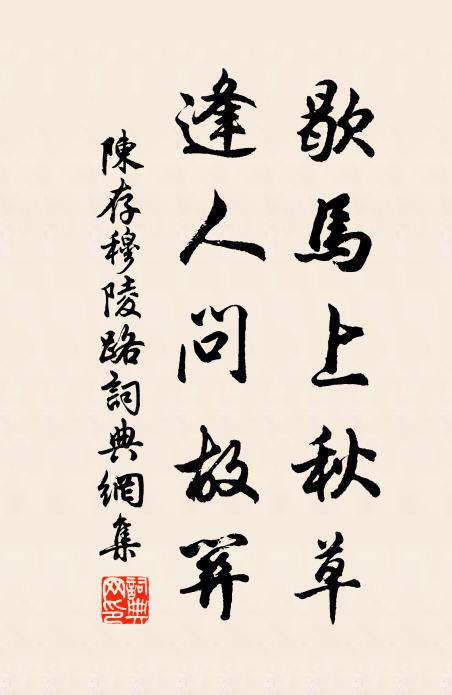 歇馬上秋草
逢人問故關
陳存穆陵路詞典網集
詞典网印